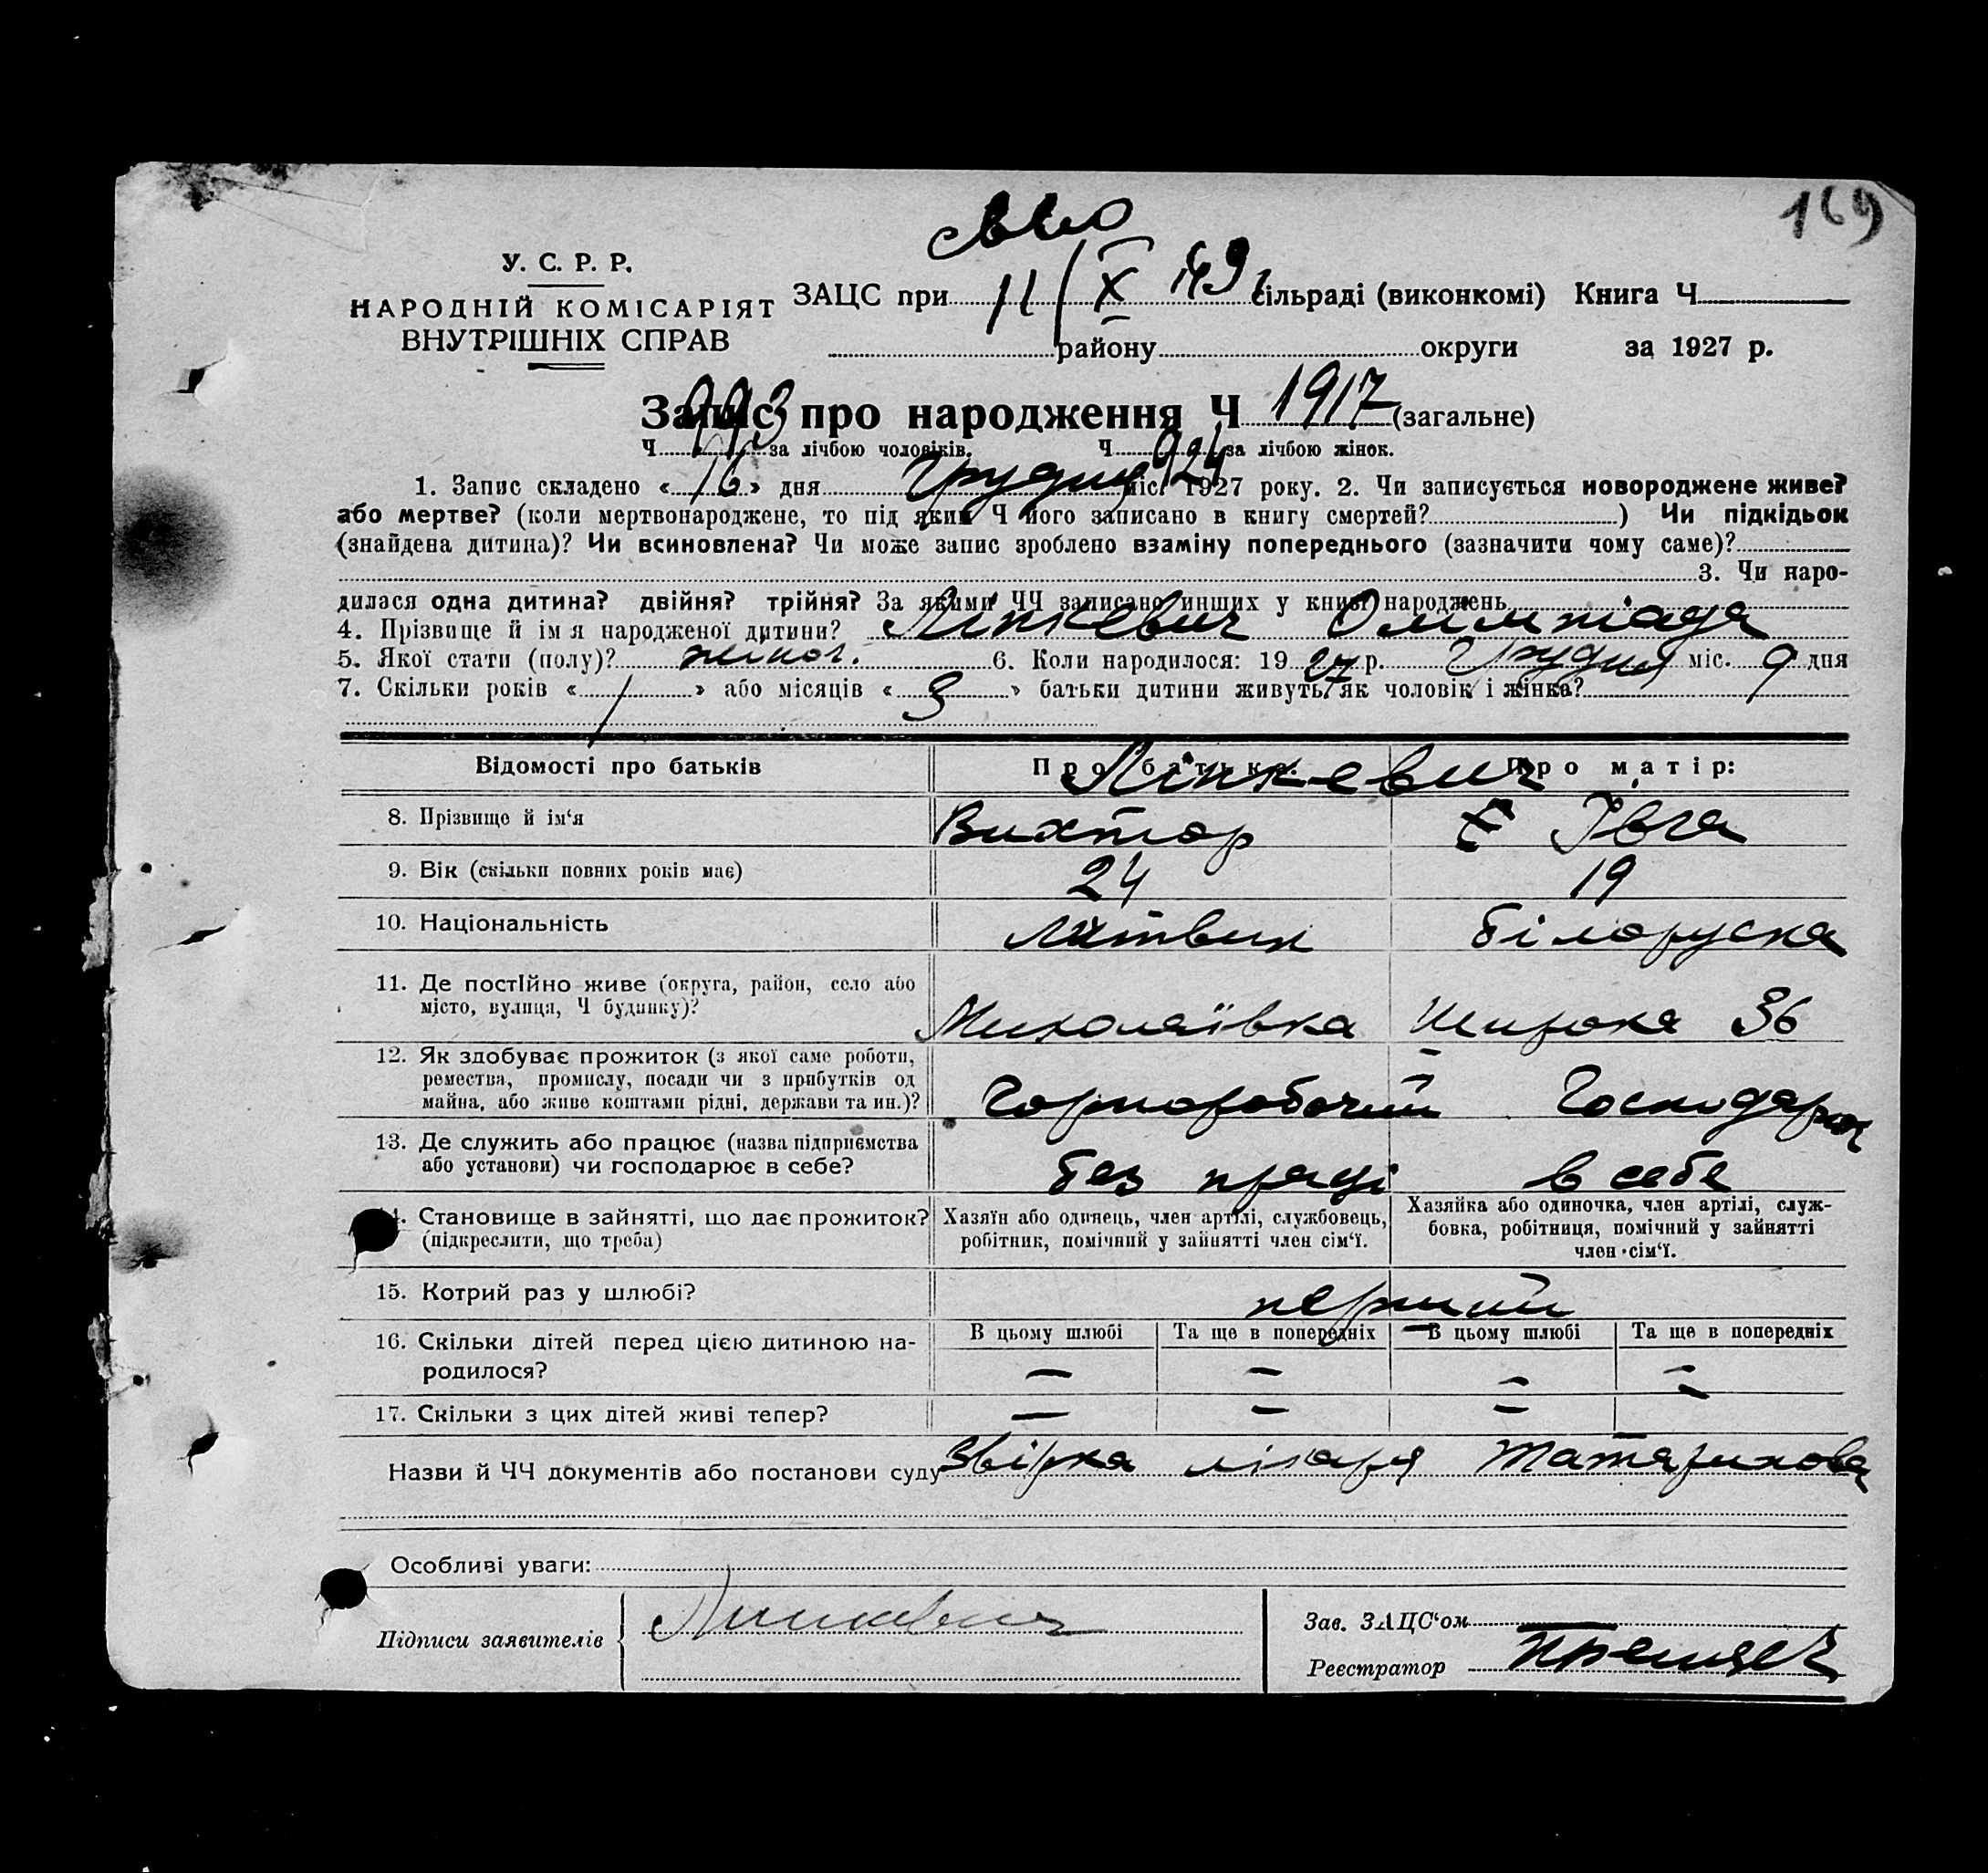 169
У. С. Р. Р.
НАРОДНІЙ КОМІСАРІЯТ
ВНУТРІШНІХ СПРАВ
ЗАЦС при 11/X 49 сільраді (виконкомі) Книга Ч
району округи за 1927 р.
Запис про народження Ч 1917 (загальне)
Ч 993 за лічбою чоловіків. Ч 924 за лічбою жінок.
1. Запис складено « 16 » дня Грудня міс. 1927 року. 2. Чи записується новороджене живе?
або мертве? (коли мертвонароджене, то під яким Ч його записано в книгу смертей? ) Чи підкідьок
(знайдена дитина)? Чи всиновлена? Чи може запис зроблено взаміну попереднього (зазначити чому саме)?
3. Чи наро-
дилася одна дитина? двійня? трійня? За якими ЧЧ записано инших у книзі народжень
4. Прізвище й ім я народженої дитини? Лінкевич Олімпіада
5. Якої стати (полу)? жіноч. 6. Коли народилося: 19 27 р. Грудня міс. 9 дня
7. Скільки років « 1 » або місяців « 3 » батьки дитини живуть як чоловік і жінка?
Відомості про батьків Про батька: Про матір:
Лінкевич
8. Прізвище й ім‘я Вихтор Івга
9. Вік (скільки повних років має) 24 19
10. Національність литвин білоруска
11. Де постійно живе (округа, район, село або
місто, вулиця, Ч будинку)? Миколаївка Широка 36
12. Як здобуває прожиток (з якої саме роботи,
ремества, промислу, посади чи з прибутків од
майна, або живе коштами рідні, держави та ин.)? Чорноробочий Господарка
13. Де служить або працює (назва підприємства
або установи) чи господарює в себе? без праці в себе
14. Становище в зайнятті, що дає прожиток?
(підкреслити, що треба)
Хазяїн або одинець, член артілі, службовець,
робітник, помічний у зайнятті член сім‘ї.
Хазяйка або одиночка, член артілі, служ-
бовка, робітниця, помічний у зайнятті
член сім‘ї.
15. Котрий раз у шлюбі? перший
16. Скільки дітей перед цією дитиною на-
родилося?
В цьому шлюбі Та ще в попередніх В цьому шлюбі Та ще в попередніх
— — — —
17. Скільки з цих дітей живі тепер? — — —
Назви й ЧЧ документів або постанови суду Звірка лікаря Татаринова
Особливі уваги:
Підписи заявителів Линкевич
Зав. ЗАЦС‘ом
Реєстратор